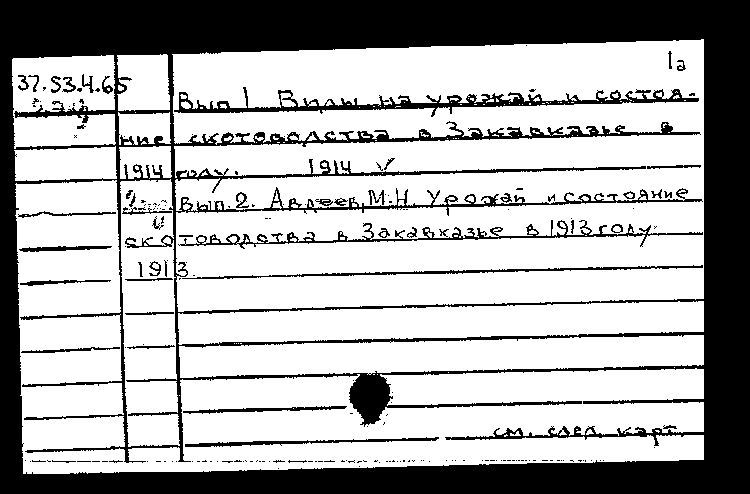 1а
37.S3.4.65
Вып 1. Виды на урожай и состоя-
ние скотоводства в Закавказье в
1914 году. 1914 ✓
Вып. 2. Авдеев, М.Н. Урожай и состояние
скотоводства в Закавказье в 1913 году.
1913
см. след. карт.